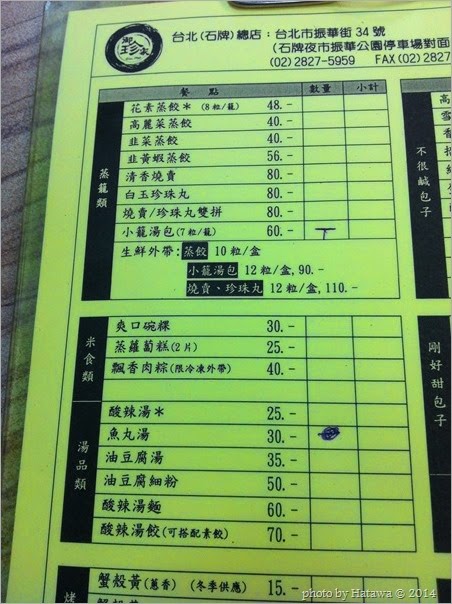 御珍家
台北(石牌)總店：台北市振華街34號
(石牌夜市振華公園停車場對面
(02)2827-5959 FAX(02)2827
餐點 數量 小計
蒸籠類
花素蒸餃＊(8粒/籠) 48.-
高麗菜蒸餃 40.-
韭菜蒸餃 40.-
韭黃蝦蒸餃 56.-
清香燒賣 80.-
白玉珍珠丸 80.-
燒賣/珍珠丸雙拼 80.-
小籠湯包(7粒/籠) 60.-
生鮮外帶：蒸餃 10粒/盒
小籠湯包 12粒/盒,90.-
燒賣、珍珠丸 12粒/盒,110.-
米食類
爽口碗粿 30.-
蒸蘿蔔糕(2片) 25.-
飄香肉粽(限冷凍外帶) 40.-
湯品類
酸辣湯＊ 25.-
魚丸湯 30.-
油豆腐湯 35.-
油豆腐細粉 50.-
酸辣湯麵 60.-
酸辣湯餃(可搭配素餃) 70.-
烤
蟹殼黃(蔥香) (冬季供應) 15.-
不很鹹包子
高
雪
香
剛好甜包子
photo by Hatawa © 2014